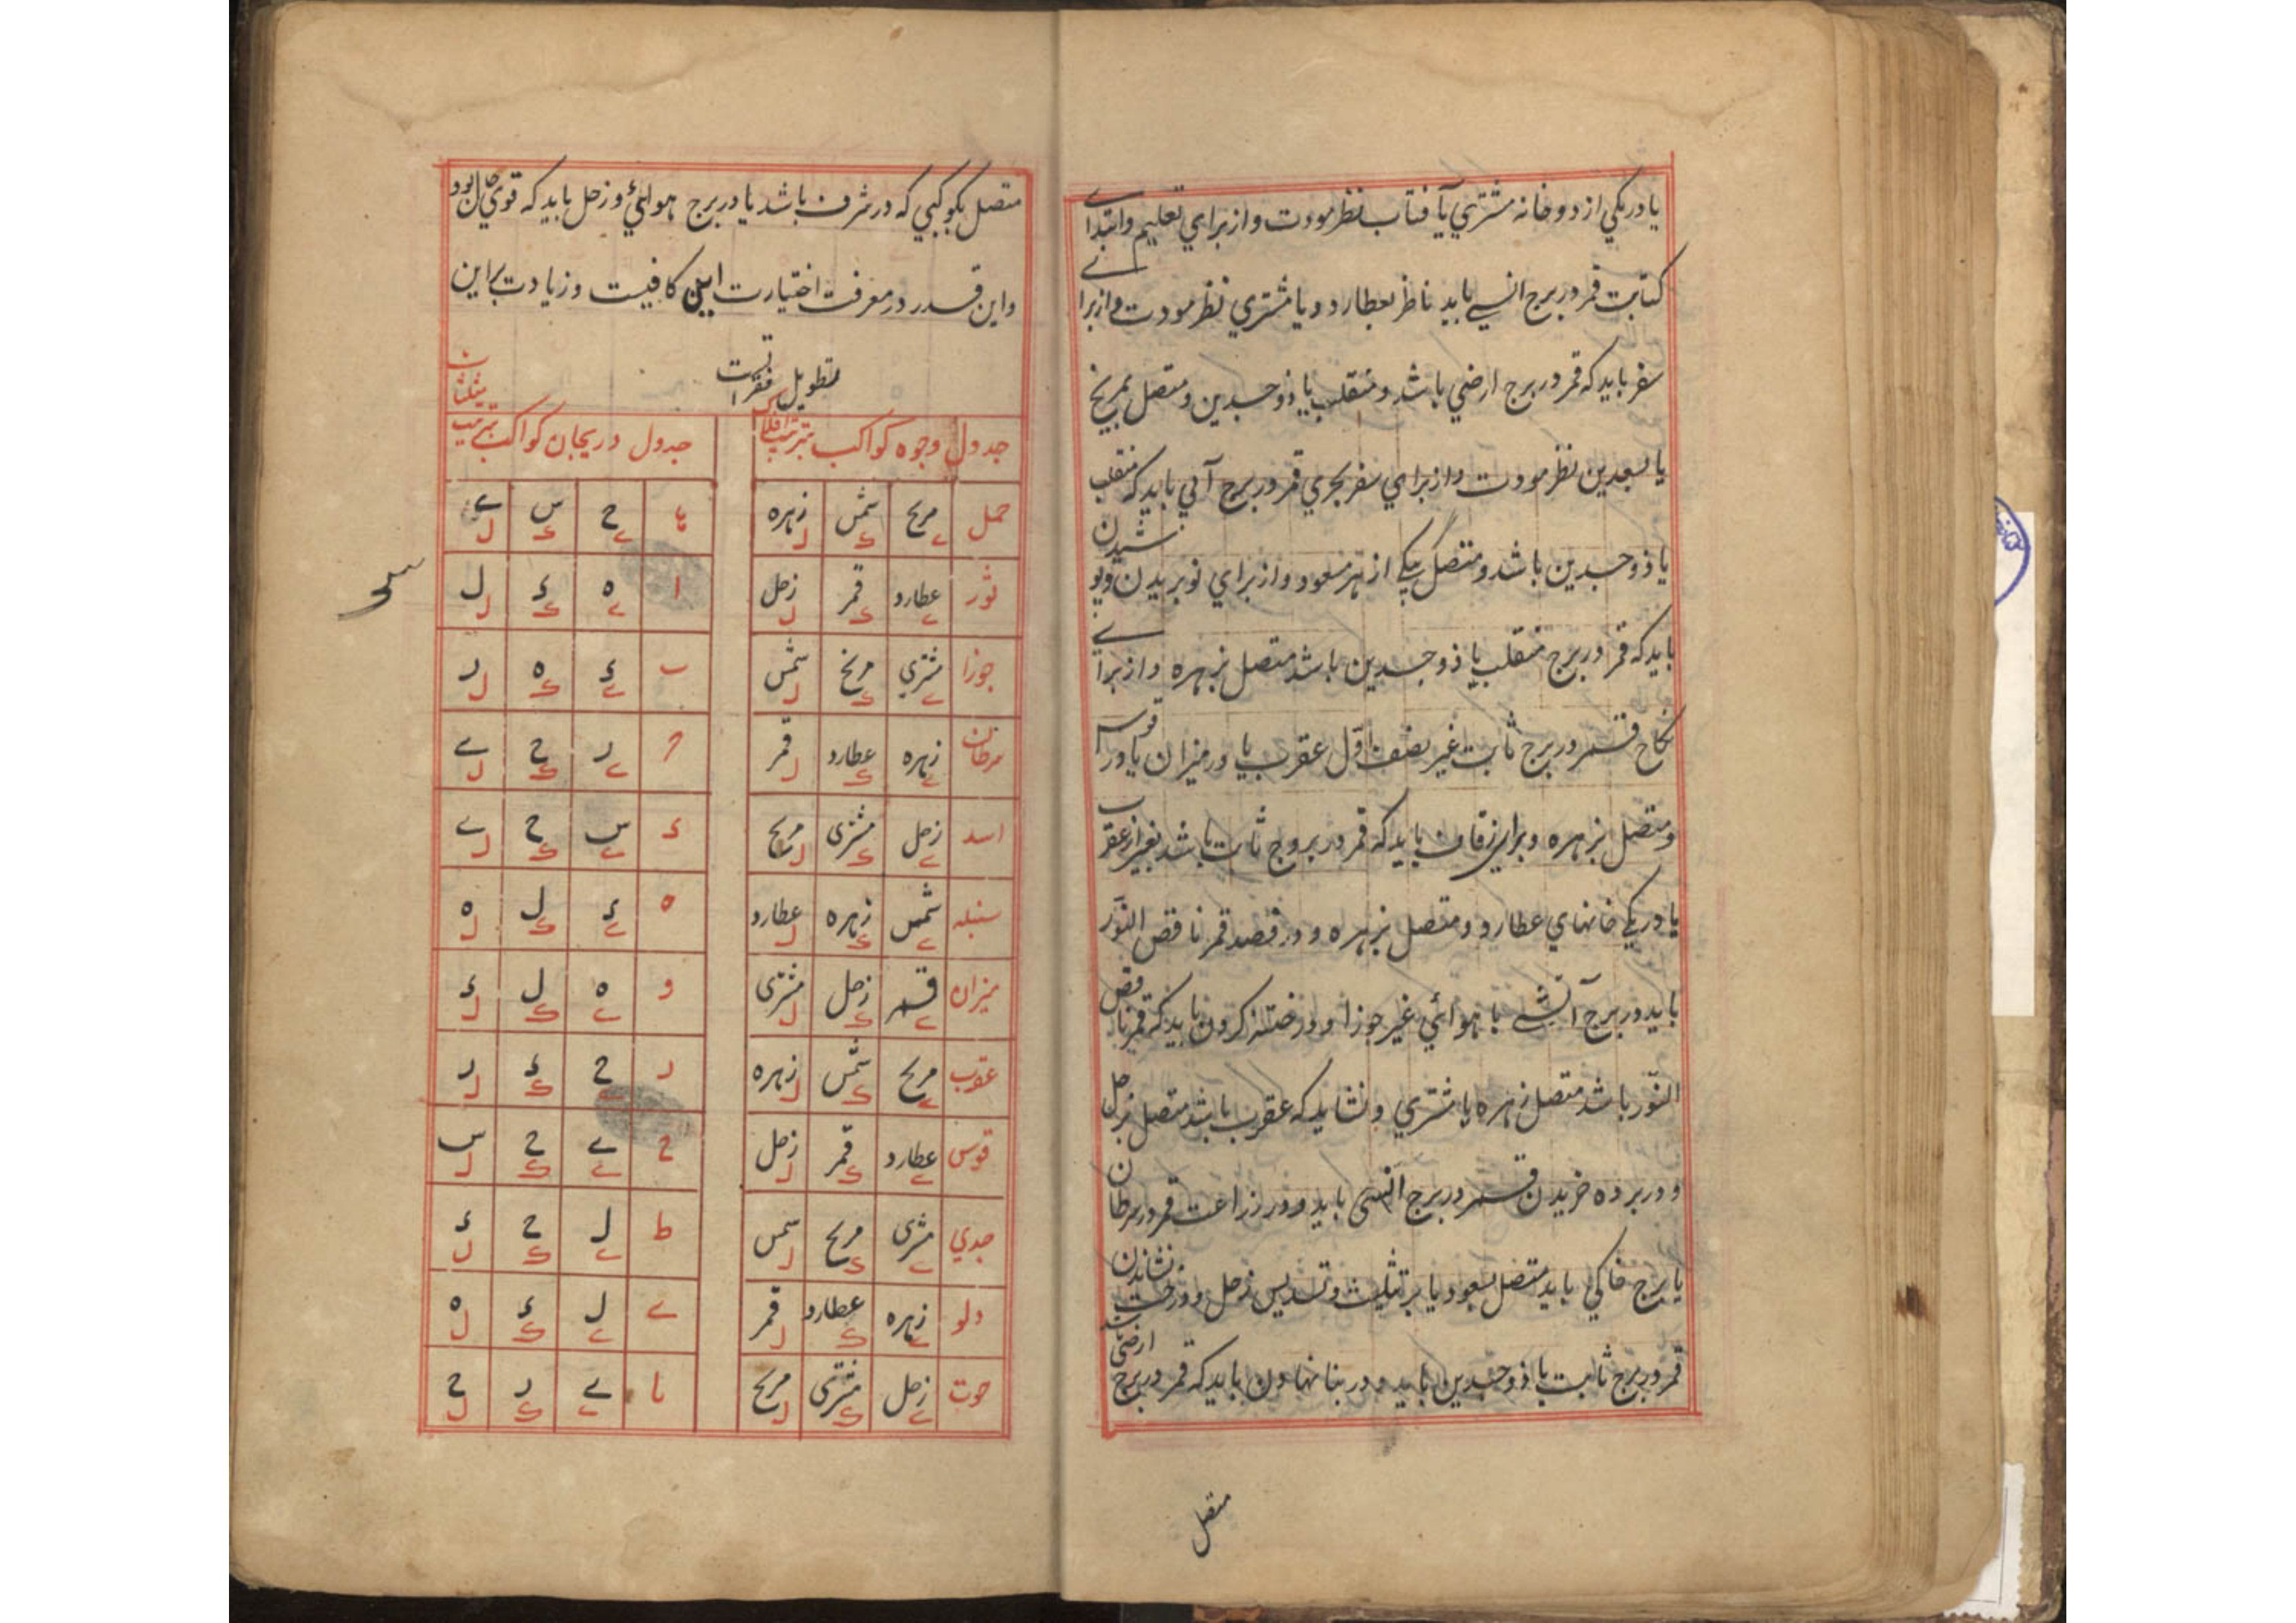 یا در یکی از دو خانه مشتري یا آفتاب نظر مودت و از براي تعلیم و ابتداے
کتابت قمر در برج انسے باید ناظر بعطارد و یا مشتري نظر مودت و از براے
سفر باید که قمر در برج ارضي باشد و منقلب یا ذو جسدین و متصل بمریخ
یا بسعدین نظر مودت و از براي سفر بحري قمر در برج آبي باید که منقلب
یا ذو جسدین باشد و متصل بیکے از هر مسعود و از براي نو بریدن و پوشیدن
باید که قمر در برج منقلب یا ذو جسدین باشد متصل بزهره و از براے
نکاح قمر در برج ثابت غیر نصف اوّل عقرب یا در میزان یا در قوس
و متصل بزهره و براي زفاف باید که قمر در بروج ثابت باشد بغیر از عقرب
یا در یکے خانهاي عطارد و متصل بزهره و در فصد قمر ناقص النّور
باید در برج آتشے یا هوائي غیر جوزا و در ختنه کردن باید که قمر ناقص
النّور باشد متصل زهره یا مشتري و نشاید که عقرب باشد متصل بزحل
و در برده خریدن قمر در برج انسی باید و در زراعت قمر در سرطان
یا برج خاکي باید متصل بسعود یا بر تثلیث و تسدیس زحل و درخت نشاندن
قمر در برج ثابت یا ذو جسدین باید و در بنا نهادن باید که قمر در برج ارضی باشد
متصل
متصل بکوکبي که در شرف باشد یا در برج هوائي و زحل باید که قوي حال بود
و این قدر در معرفت اختیارت این کافیست و زیادت بر این
بتطویل
جدول وجوه کواکب بترتیب افلاک
حمل مریخ ے شمس ک زهره ل
ثور عطارد ے قمر ک زحل ل
جوزا مشتري ے مریخ ک شمس ل
سرطان زهره ے عطارد ک قمر ل
اسد زحل ے مشتری ک مریخ ل
سنبله شمس ے زهره ک عطارد ل
میزان قمر ے زحل ک مشتری ل
عقرب مریخ ے شمس ک زهره ل
قوس عطارد ے قمر ک زحل ل
جدي مشتری ے مریخ ک شمس ل
دلو زهره ے عطارد ک قمر ل
حوت زحل ے مشتری ک مریخ ل
جدول دریجان کواکب بترتیب مثلثات
ح ے س ک ے ل
ا ه ے ء ک ل ل
ب ء ے ه ک ر ل
ح ر ے ح ک ے ل
ء س ے ح ک ے ل
ه ء ے ل ک ه ل
و ه ے ل ک ء ل
ر ح ے ء ک ر ل
ح ے ے ح ک س ل
ط ل ے ح ک ء ل
ے ل ے ء ک ه ل
یا ے ے ر ک ح ل